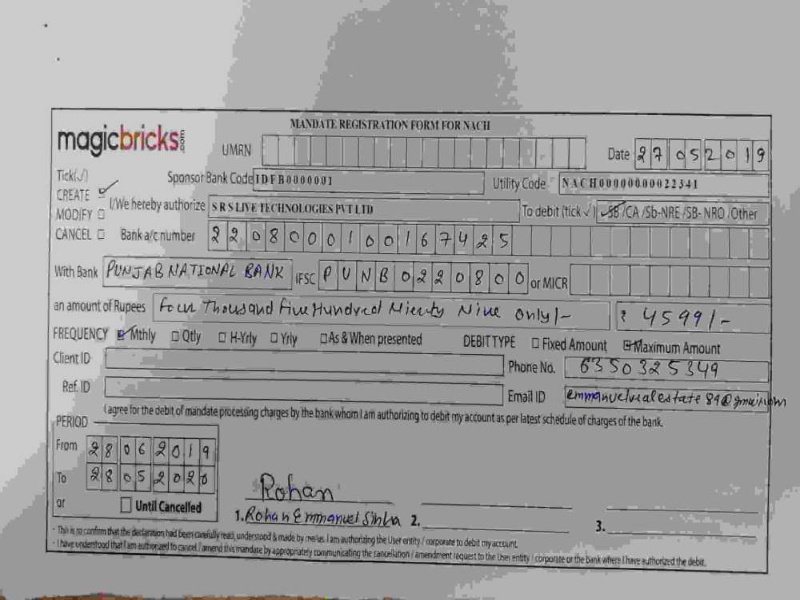 MANDATE REGISTRATION FORM FOR NACH
magicbricks.com
UMRN
Date 27052019
Tick(✓)
Sponsor Bank Code IDFB0000001
Utility Code NACH00000000022341
CREATE ✓
I/We hereby authorize S R S LIVE TECHNOLOGIES PVT LTD
To debit (tick ✓) SB /CA /Sb-NRE /SB- NRO /Other
MODIFY
CANCEL
Bank a/c number 2208000100167425
With Bank PUNJAB NATIONAL BANK IFSC PUNB0220800 or MICR
an amount of Rupees Four Thousand Five Hundred Ninety Nine only/- ₹ 4599/-
FREQUENCY Mthly Qtly H-Yrly Yrly As & When presented DEBIT TYPE Fixed Amount Maximum Amount
Client ID
Phone No. 6350325349
Ref. ID
Email ID
I agree for the debit of mandate processing charges by the bank whom I am authorizing to debit my account as per latest schedule of charges of the bank.
PERIOD
From 28062019
To 28052020
or Until Cancelled
Rohan
1. Rohan Emmanuel Sinha 2. 3.
- This is to confirm that the declaration had been carefully read, understood & made by me/us. I am authorizing the User entity / corporate to debit my account.
- I have understood that I am authorized to cancel / amend this mandate by appropriately communicating the cancellation / amendment request to the User entity / corporate or the bank where I have authorized the debit.